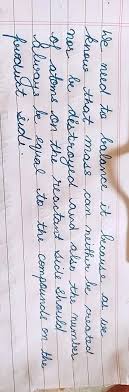 We need to balance it because as we
know that mass can neither be created
nor be destroyed and also the number
of atoms on the reactant side should
always be equal to the compounds on the
product side.